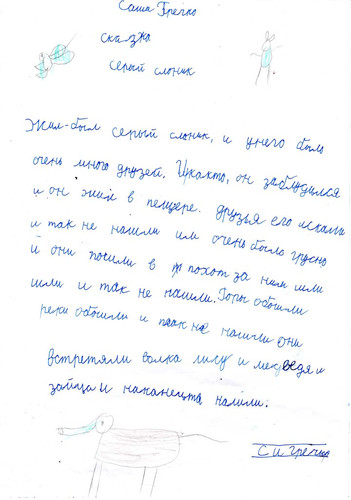 Саша Гречко
сказка
серый слоник
Жил-был серый слоник, и унего было
очень много друзей. Икакто, он заблудился
и он жил в пещере. друзья его искали
и так не нашли им очень было грусно
и они пошли в похот за ним шли
шли и так не нашли. Горы обошли
реки обошли и так не нашли они
встретяли волка лису и медведя и
зайца и наканецта нашли.
С и гречко